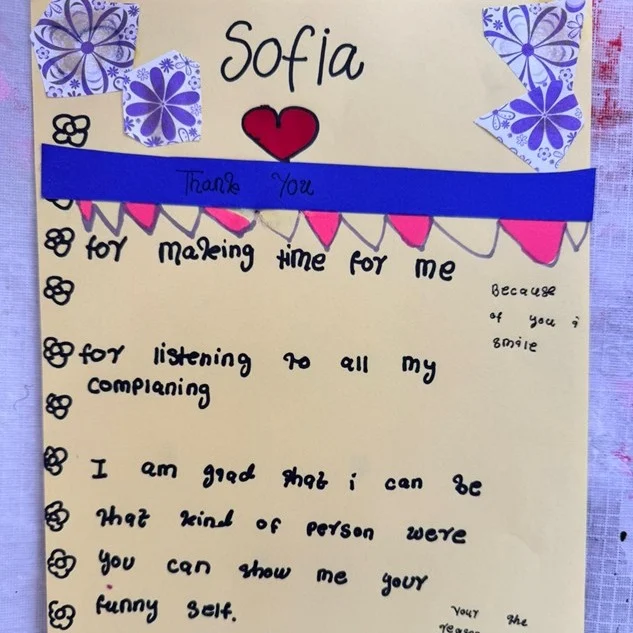 Sofia
Thank You
for makeing time for me
Because
of you i
smile
for listening to all my
complaning
I am grad that i can be
that kind of person were
you can show me your
funny self.
Your the
reason